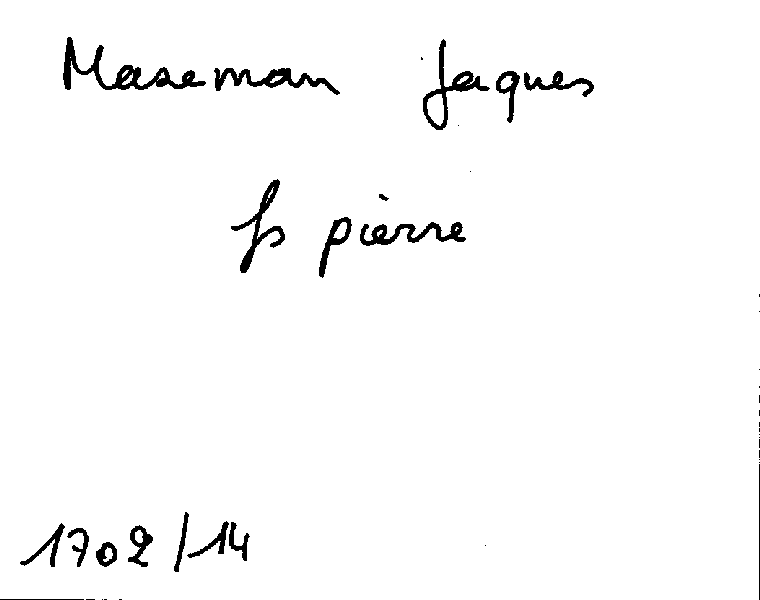 Maseman Jaques
fs pierre
1702/14